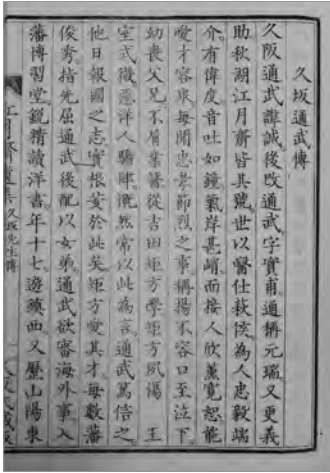 久坂通武傳
久阪通武諱誠後改通武字實甫通稱元瑞又更義
助秋湖江月齋皆其號世以醫仕萩侯為人忠毅端
介有偉度音吐如鐘氣岸甚峭而接人欣薰寬恕能
愛才容衆每聞忠孝節烈之事稱揚不容口至泣下
幼喪父兄不屑業醫從吉田矩方學矩方夙傷 王
室式微惡洋人驕肆慨然常以此為言通武篤信之
他日報國之志實根荄於此矣矩方愛其才每數藩
俊秀指先屈通武後配以女弟通武欲審海外事入
藩博習堂銳精讀洋書年十七遊鎮西又歷山陽東
江月齋遺集 久坂先生傳